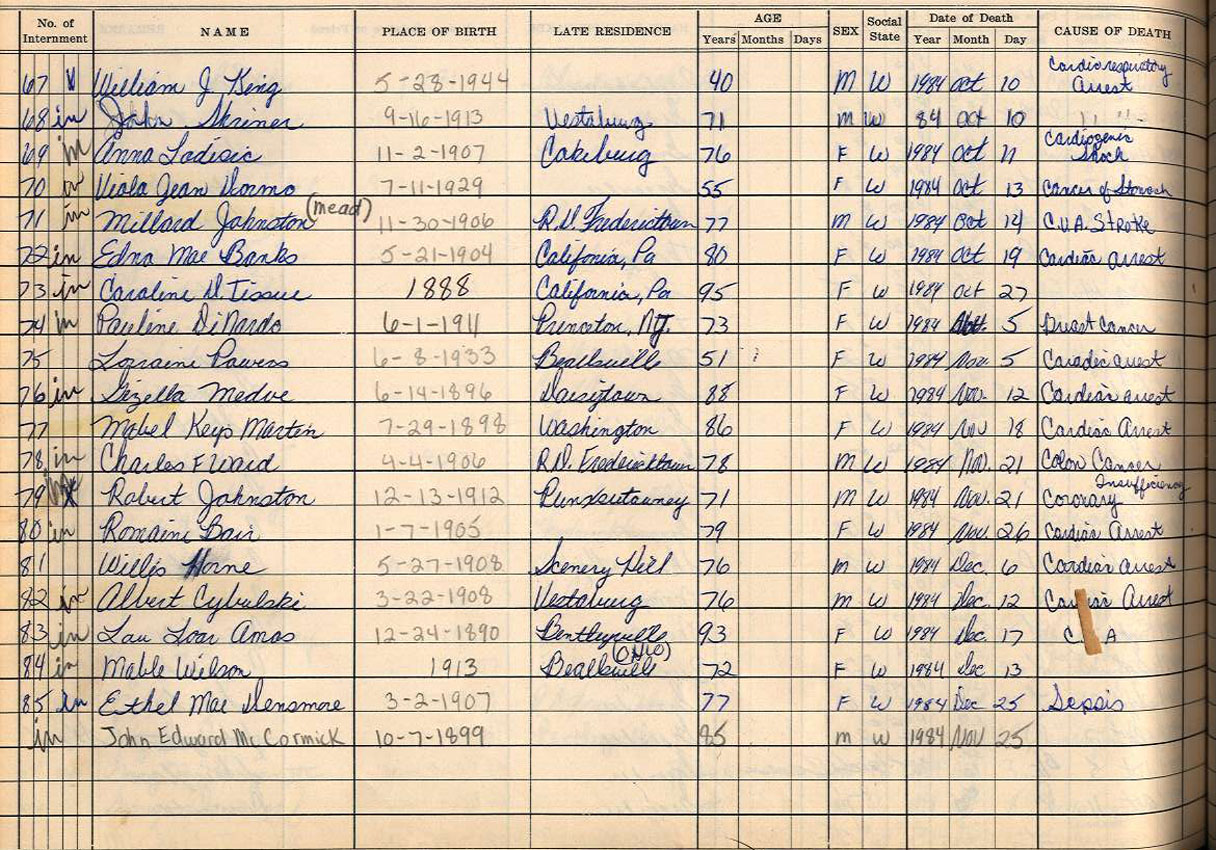 No. of Internment NAME PLACE OF BIRTH LATE RESIDENCE AGE Years Months Days SEX Social State Date of Death Year Month Day CAUSE OF DEATH
67 William J. King 5-28-1944 40 M W 1984 Oct 10 Cardiorespiratory Arrest
68 in John Skriner 9-16-1913 Vestaburg 71 M W 84 Oct 10 " "
69 in Anna Ladisic 11-2-1907 Cokeburg 76 F W 1984 Oct 11 Cardiogenic Shock
70 in Viola Jean Dormo 7-11-1929 55 F W 1984 Oct 13 Cancer of Stomach
71 in Millard Johnston (mead) 11-30-1906 R.D. Fredericktown 77 M W 1984 Oct 14 C.V.A. Stroke
72 in Edna Mae Banks 5-21-1904 Califonia, Pa 80 F W 1984 Oct 19 Cardiac arrest
73 in Caroline D. Tissue 1888 California, Pa 95 F W 1984 Oct 27
74 in Pauline DiNardo 6-1-1911 Princeton, NJ. 73 F W 1984 5 Breast Cancer
75 Lorraine Powers 6-8-1933 Beallsville 51 F W 1984 Nov. 5 Caradic arrest
76 in Gizella Medve 6-14-1896 Daisytown 88 F W 1984 Nov. 12 Cardiac arrest
77 Mabel Keys Martin 7-29-1898 Washington 86 F W 1984 Nov 18 Cardiac Arrest
78 in Charles F Ward 4-4-1906 R.D. Fredericktown 78 M W 1984 Nov. 21 Colon Cancer
79 Robert Johnston 12-13-1912 Punxsutawney 71 M W 1984 Nov. 21 Coronary Insufficiency
80 in Romaine Bair 1-7-1905 79 F W 1984 Nov. 26 Cardiac Arrest
81 Willis Horne 5-27-1908 Scenery Hill 76 M W 1984 Dec. 6 Cardiac arrest
82 in Albert Cybulski 3-22-1908 Vestaburg 76 M W 1984 Dec. 12 Arrest
83 in Loar Amos 12-24-1890 Bentleyville 93 F W 1984 Dec 17 C A
84 in Mable Wilson 1913 Beallsville (OHIO) 72 F W 1984 Dec 13
85 in Ethel Mae Densmore 3-2-1907 77 F W 1984 Dec 25 Sepsis
in John Edward McCormick 10-7-1899 85 M W 1984 Nov 25